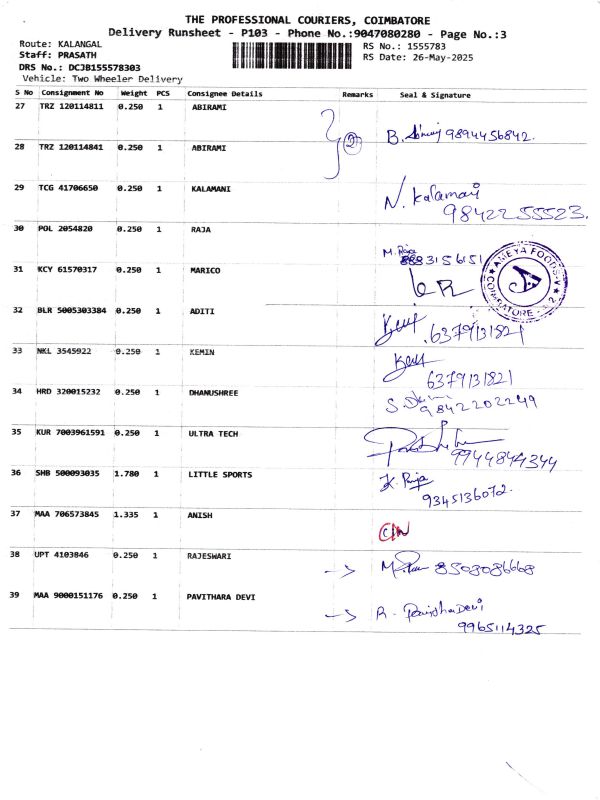 THE PROFESSIONAL COURIERS, COIMBATORE
Delivery Runsheet - P103 - Phone No.:9047080280 - Page No.:3
Route: KALANGAL RS No.: 1555783
Staff: PRASATH RS Date: 26-May-2025
DRS No.: DCJB155578303
Vehicle: Two Wheeler Delivery
S No Consignment No Weight PCS Consignee Details Remarks Seal & Signature
27 TRZ 120114811 0.250 1 ABIRAMI
2 B. 9894456842.
28 TRZ 120114841 0.250 1 ABIRAMI
29 TCG 41706650 0.250 1 KALAMANI N. Kalamani
9842255523.
30 POL 2054820 0.250 1 RAJA
M. Raja
3156151
AMEYA FOODS
COIMBATORE
31 KCY 61570317 0.250 1 MARICO
32 BLR 5005303384 0.250 1 ADITI
6379131821
33 NKL 3545922 0.250 1 KEMIN
6379131821
34 HRD 320015232 0.250 1 DHANUSHREE S.
9842202249
35 KUR 7003961591 0.250 1 ULTRA TECH
9944844344
36 SHB 500093035 1.780 1 LITTLE SPORTS K. Raja
9345136072.
37 MAA 706573845 1.335 1 ANISH
38 UPT 4103846 0.250 1 RAJESWARI
8503086668
39 MAA 9000151176 0.250 1 PAVITHARA DEVI R. Devi
9965114325